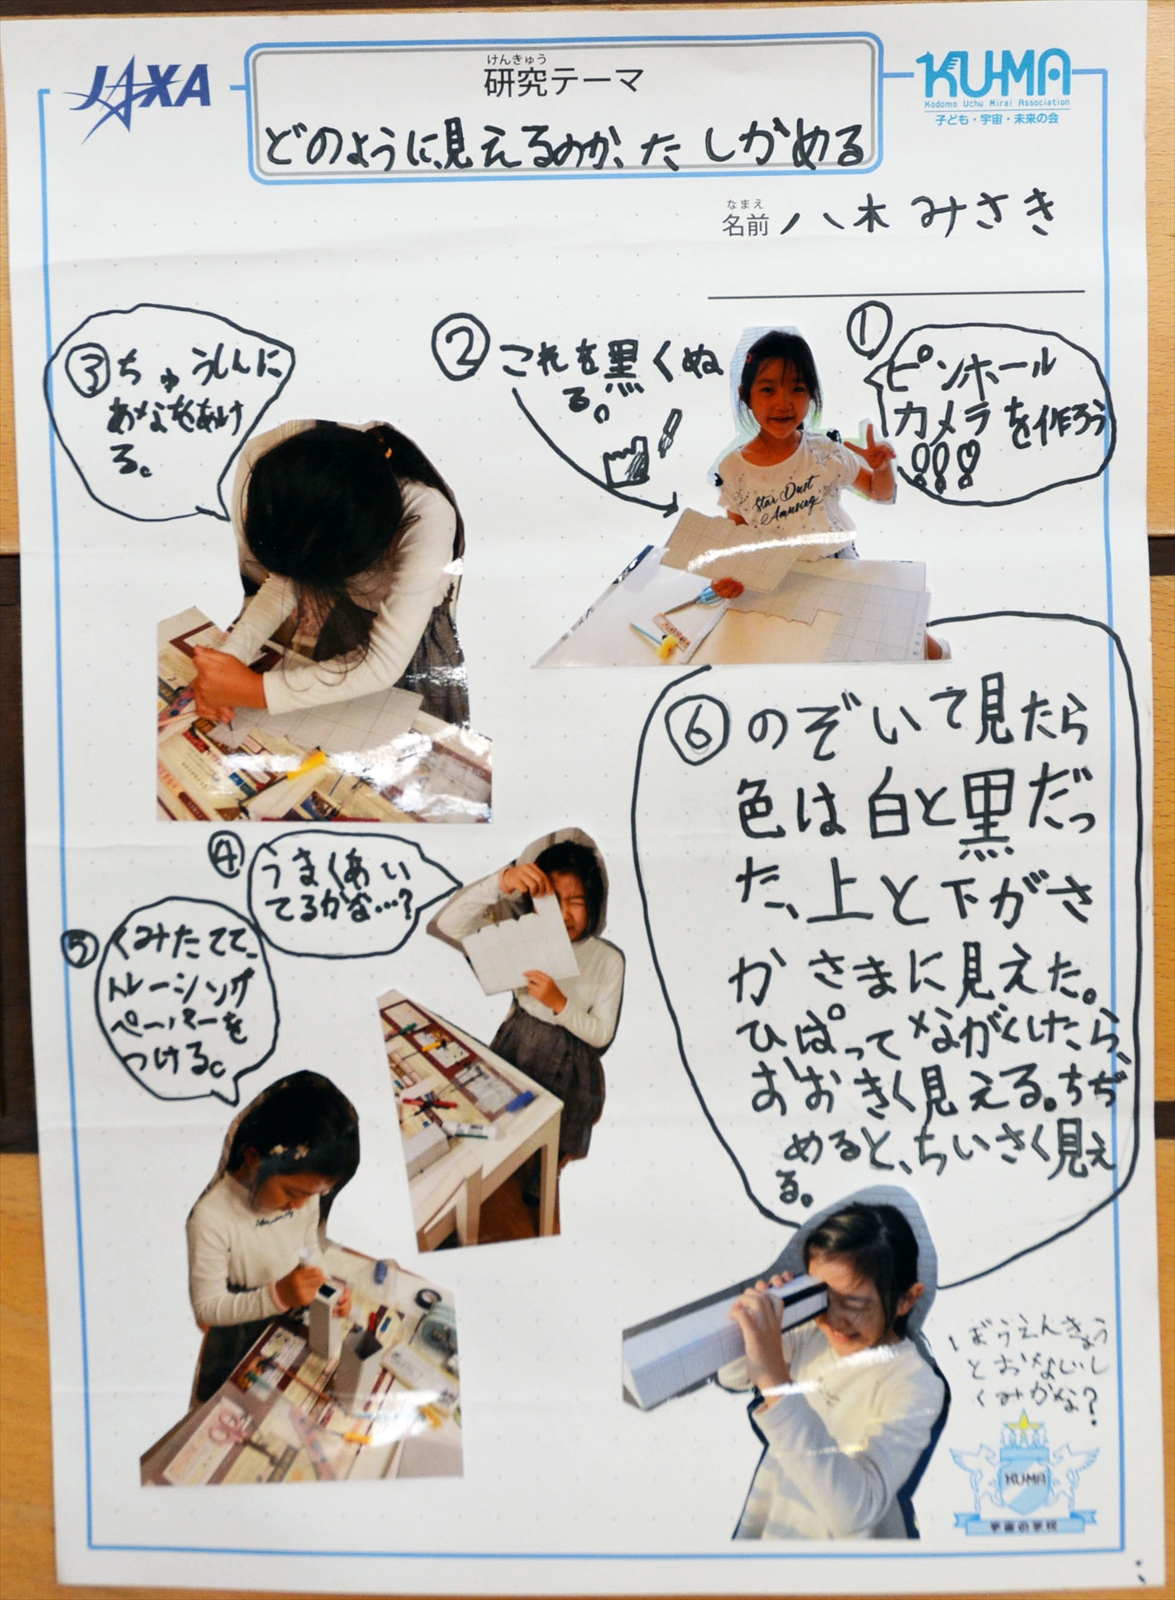 JAXA
けんきゅう
研究テーマ
KUMA
Kodomo Uchu Mirai Association
子ども・宇宙・未来の会
どのように見えるのか、たしかめる
なまえ
名前 八木 みさき
①
ピンホール
カメラを作ろう
!!!
② これを黒くぬ
る。
Star Dust
Amusing
③ ちゅうしんに
あなをあけ
る。
④
うまくあい
てるかな…?
⑤ くみたてて、
トレーシング
ペーパーを
つける。
⑥ のぞいて見たら
色は白と黒だっ
た、上と下がさ
かさまに見えた。
ひぱってながくしたら、
おおきく見える。ちぢ
めると、ちいさく見え
る。
ぼうえんきょう
とおなじし
くみかな?
KUMA
宇宙の学校